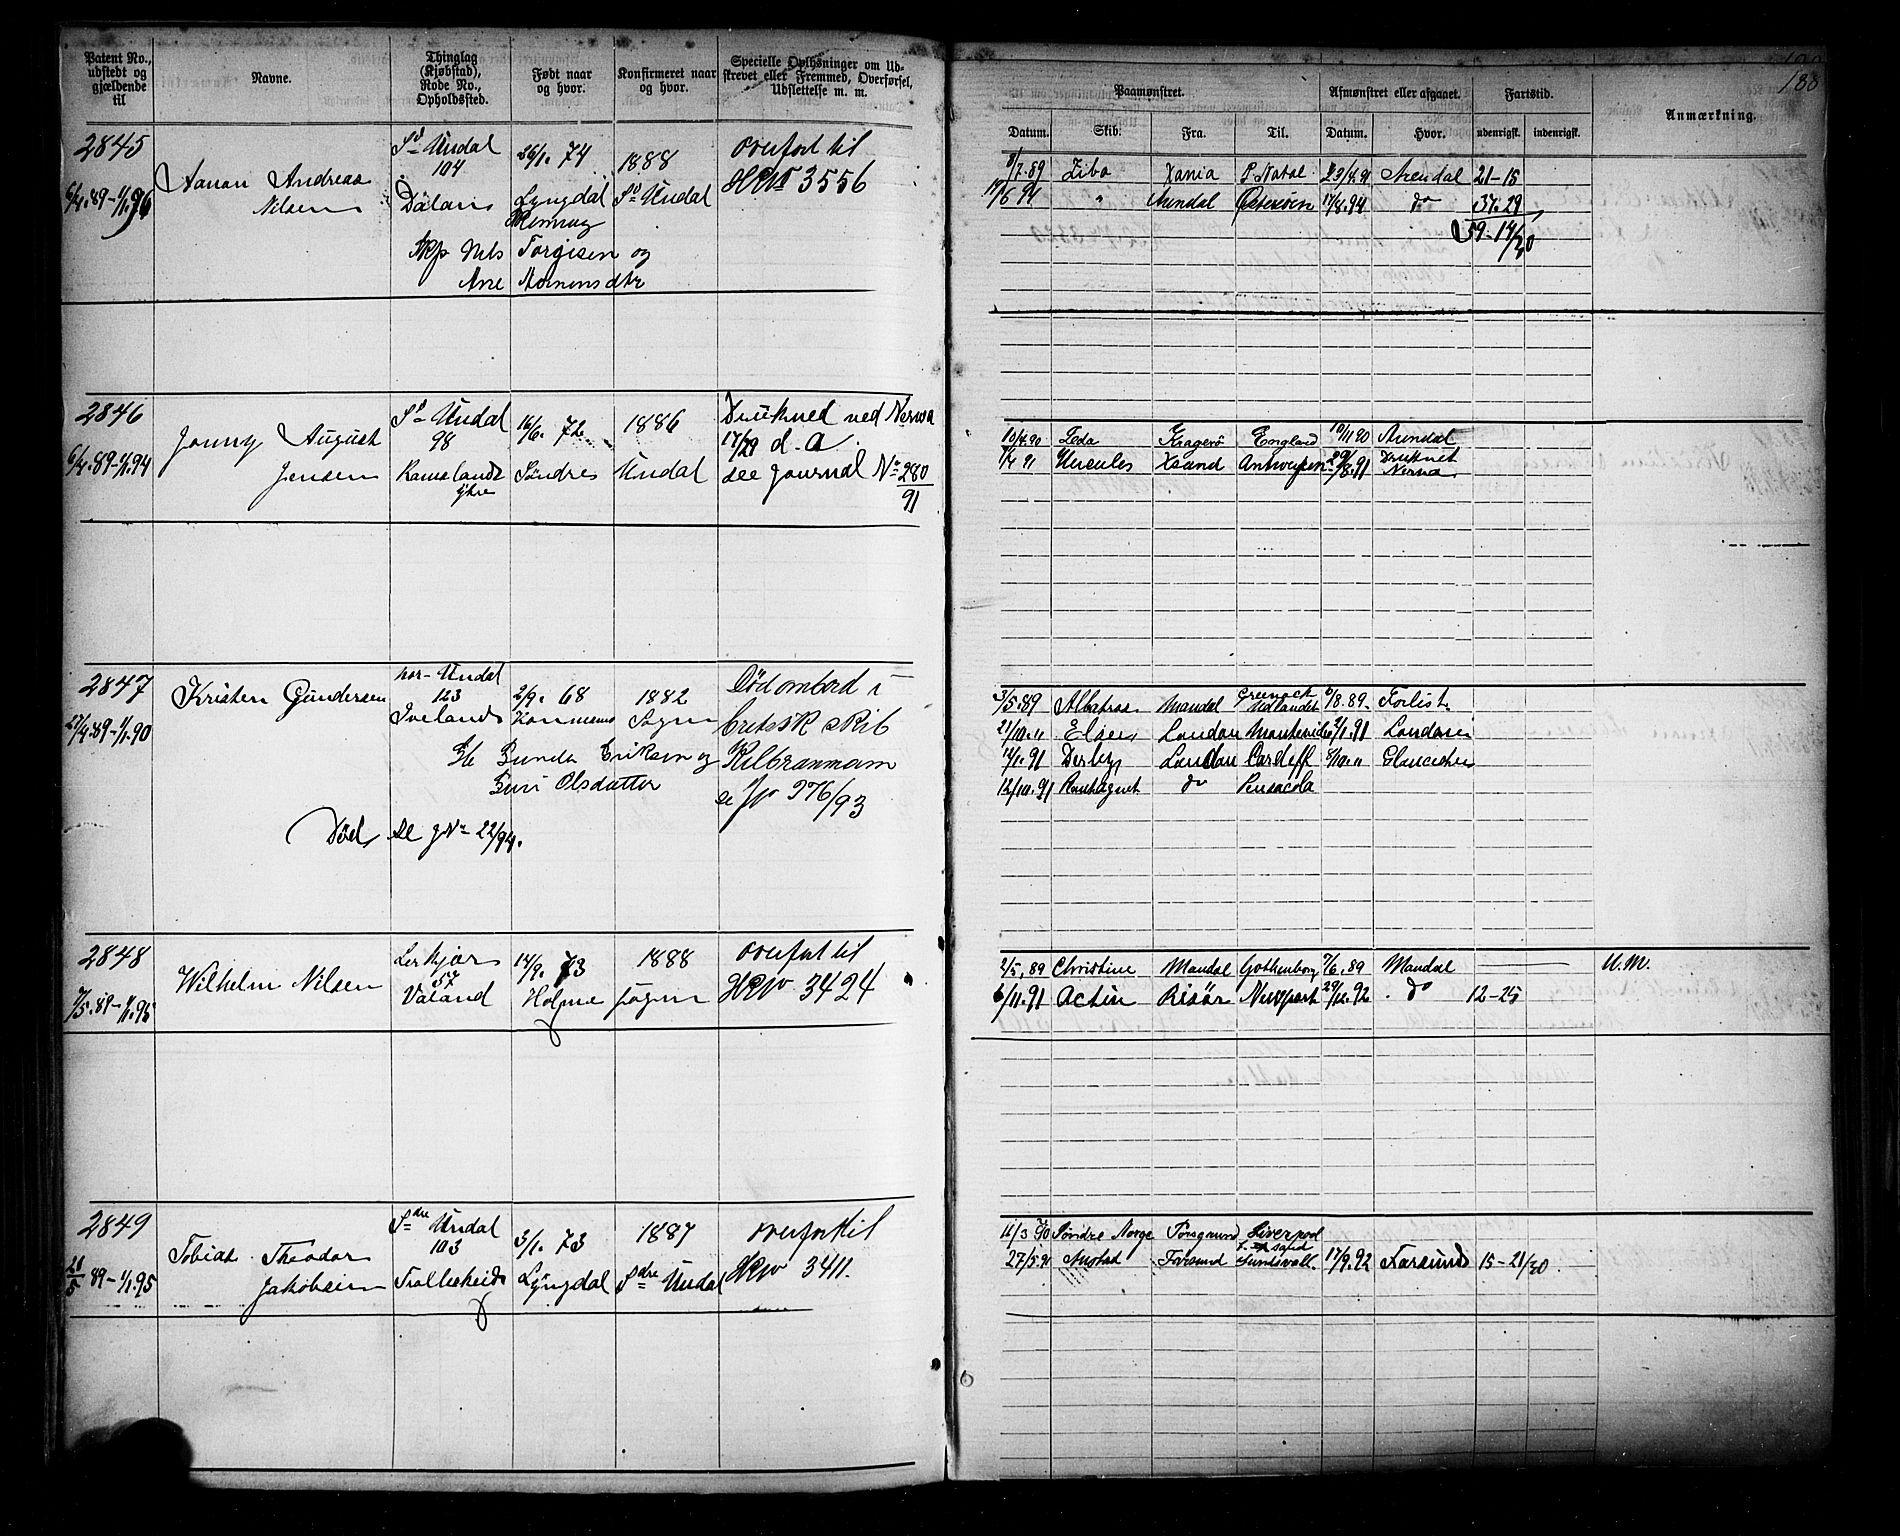 Patent No., udstedt og gjældende til
Navne.
Thinglag (Kjøbstad), Rode No., Opholdssted.
Født naar og hvor.
Konfirmeret naar og hvor.
Specielle Oplysninger om Udskrevet eller Fremmed, Overførsel, Udslettelse m. m.
2845
6/4.89-1/1.96
Aanon Andreas
Nilsen
Sd Undal
104
26/1. 74
Lyngdal
1888
Sd Undal
overført til
HRNo 3556
Nils Torgisen og
Ane
2846
6/4.89-1/1.94
Jonny August
Jensen
Sd Undal
98
Ramslands
yhre
16/6. 72
Søndre
1886
Undal
Drukned ved Nerva
17/29 d. A.
see Journal No 280/91
2847
27/4.89-1/1.90
Kristen Gundersen
nor-Undal
123
Ivelands
2/9. 68
1882
Sogn
Død ombord i
britisk skib
Kilbrannan
se Jo 976/93
Gunder Eriksen og
Guri Olsdatter
Død se JNo 22/94.
2848
7/5.89-1/1.95
Wilhelm Nilsen
57
Valand
14/9. 73
Holme
1888
sogn
overført til
HRNo 3424
2849
21/5 89-1/1.95
Tobias Theodor
Jakobsen
Sdre Undal
103
Trolleheids
3/1. 73
Lyngdal
1887
Sdre Undal
overført til
HRNo 3411.
188
Paamønstret.
Afmønstret eller afgaaet.
Fartstid.
Anmærkning.
Datum. Skib. Fra. Til. Datum. Hvor. udenrigsk. indenrigsk.
8/7.89 Ziba Xania P. Natal 23/4.91 Arendal 21-15
14/6 94 " Arendal Østersøen 17/8.94 do 37.29
59-14/30
10/4.90 Leda Kragerø England 10/11 90 Arendal
1/4 91 Hercules Xsand Antwerpen 29/8.91 Druknet
Nerva
3/5.89 Albatros Mandal Greenock
Udlandet 6/8.89. Forlist.
21/10." London Montevideo 2/1.91 London
14/1.91 Derby London Cardiff 5/10." Gloucester
12/10.91 do Pensacola
2/5.89 Christine Mandal Gothenborg 7/6.89 Mandal U.M.
6/11.91 Actin Risør Newport 29/12.92 do 12-25
11/3 90 Søndre Norge Porsgrund Liverpool
27/5.91 Farsund Sundsvall. 17/9.92 Farsund 15-21/30